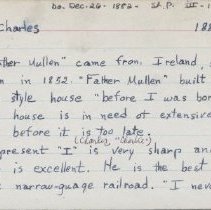 ba. Dec. 26 - 1882 - St. P. III - 1
Charles 188
ther Mullen" came from Ireland,
n in 1852. "Father Mullen" built
style house "before I was bor
house is in need of extensive
before it is too late.
(Charles, "Charlie")
present "I" is very sharp an
is excellent. He is the best
narrow-guage railroad. "I never